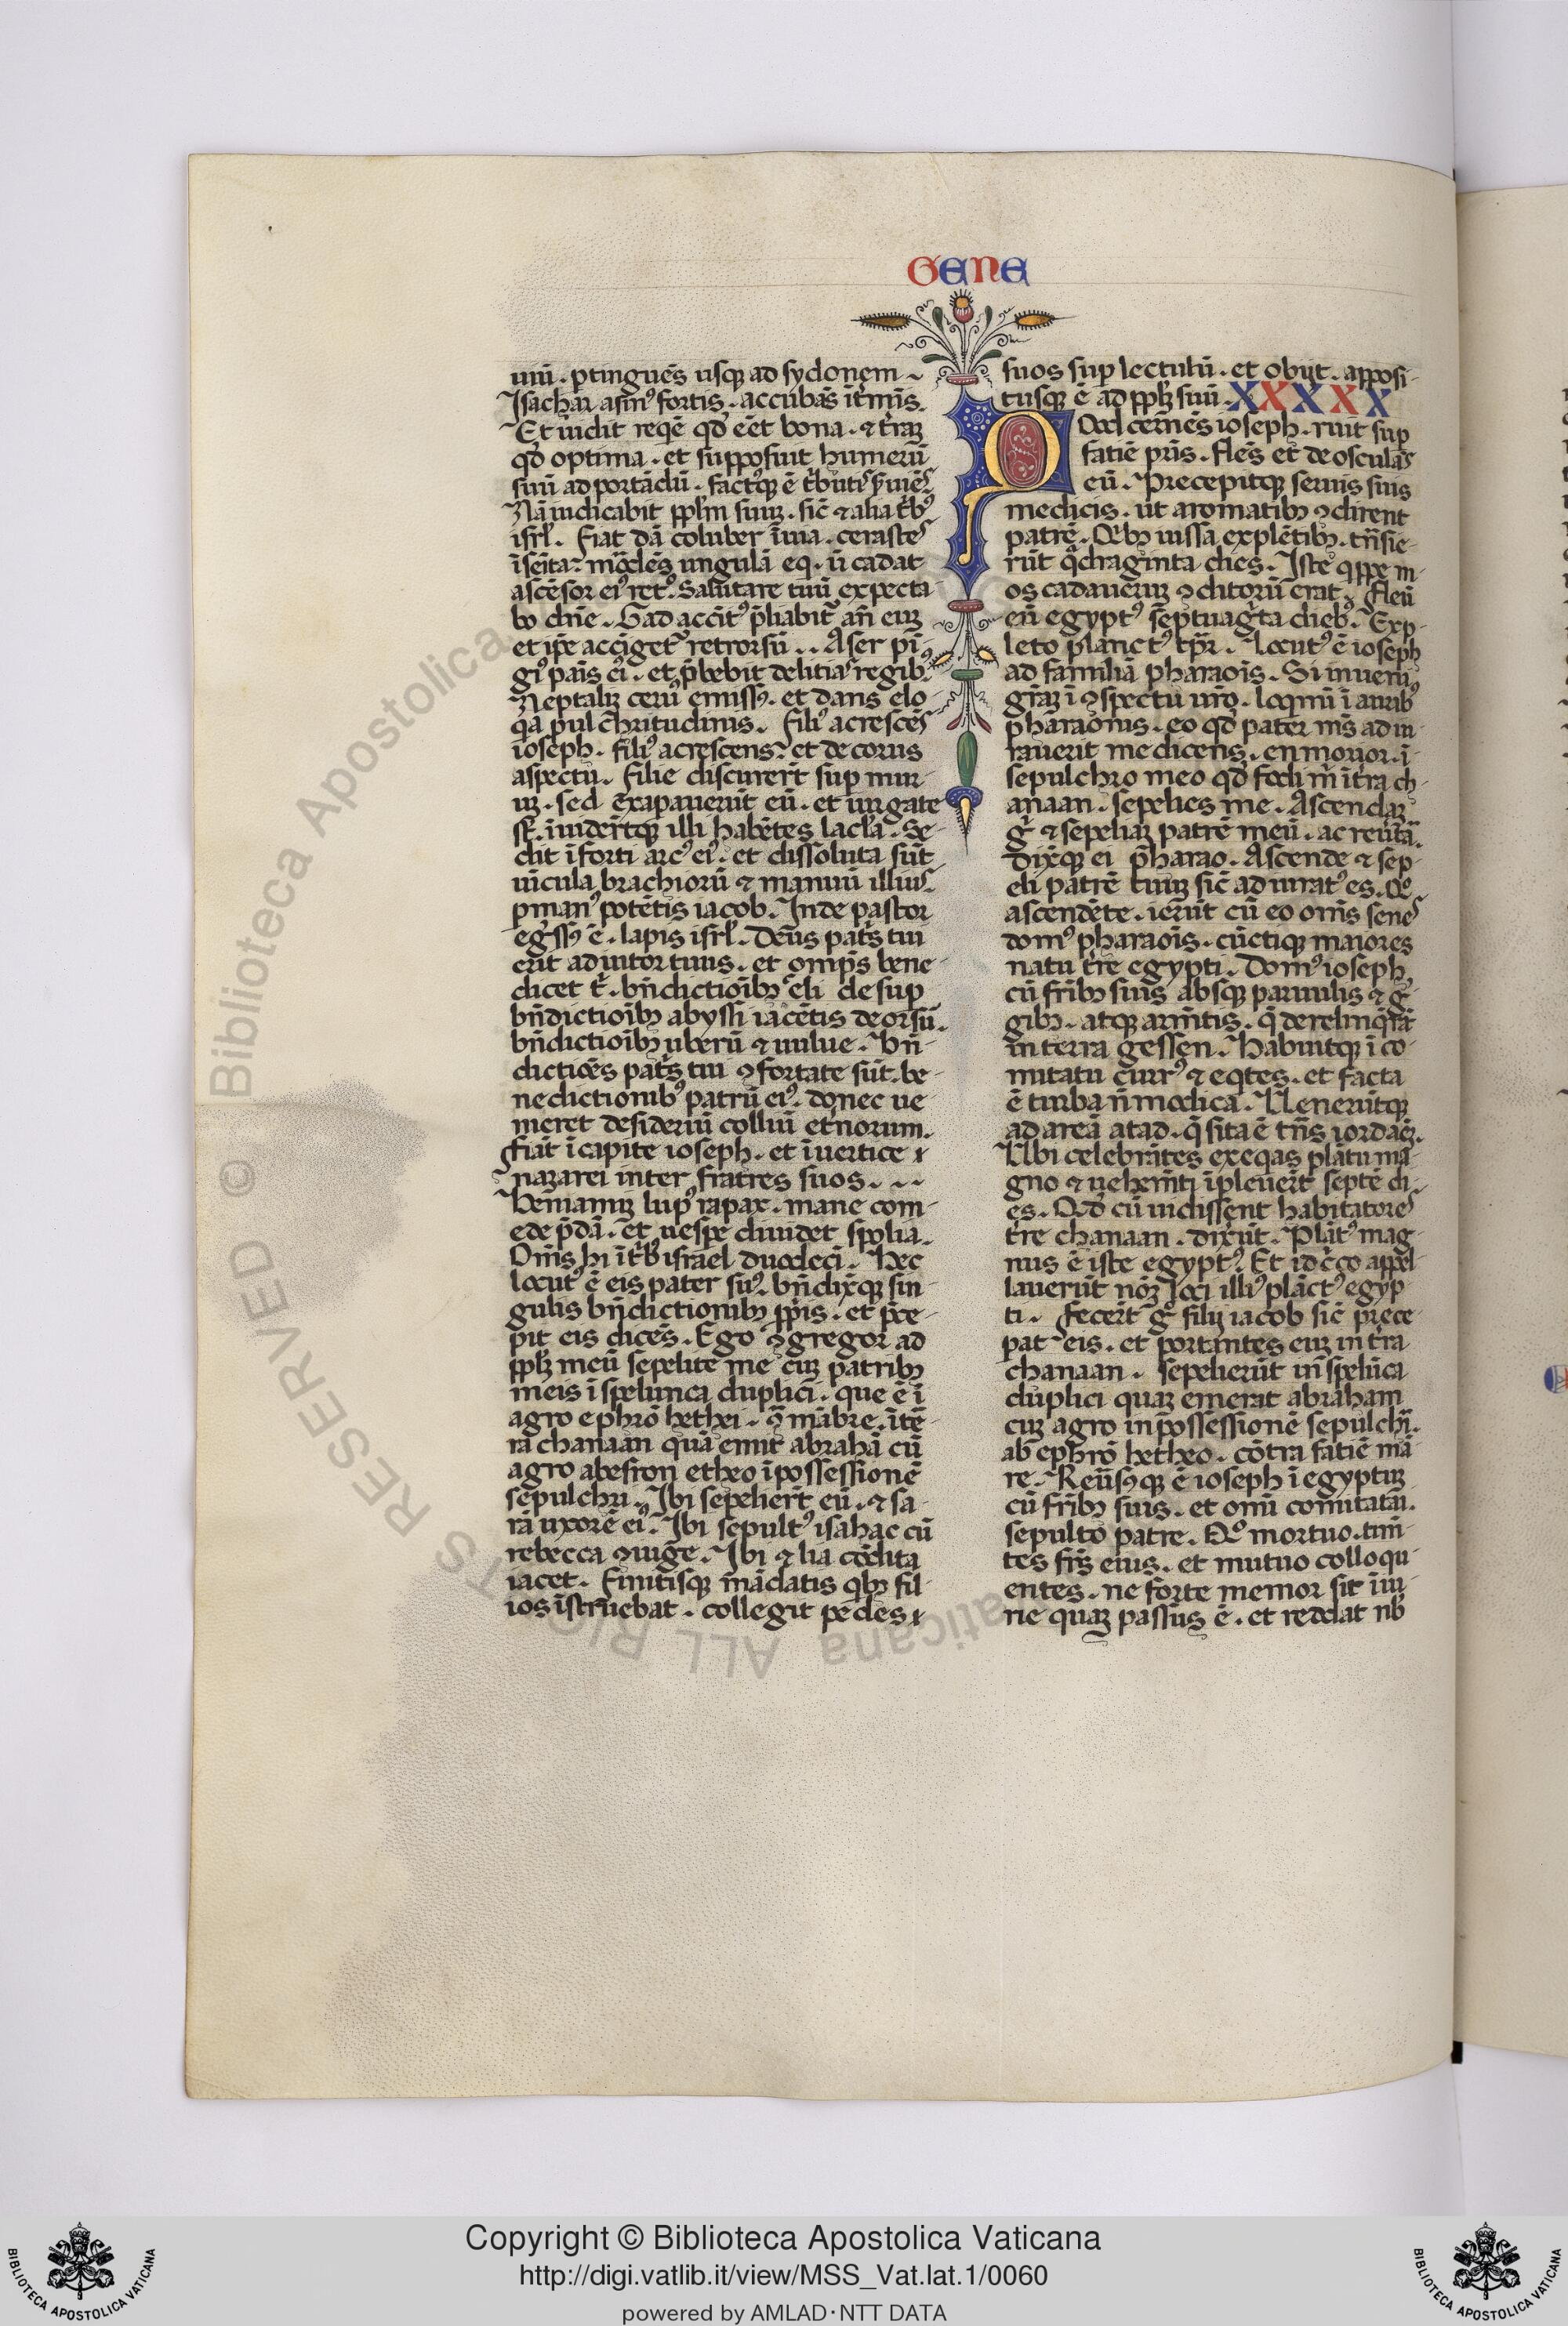 GENE
uiu̅ . ꝑtingue̅s usqꝫ ad sydonem ~
Isachar asin⁹ fortis . accuba̅s it̅mis̅.
Et uidit reqe̅ qd̕ ee̅t bona . ⁊ t̅raꝫ
qd̕ optima . et supposuit humeru̅
suu̅ ad porta̅du̅ . fact⁹qꝫ e̅ t̕buti s̕uie̅s̕.
Na̅ iudicabit ppl̕m suuꝫ . sic̅ ⁊ alia t̕b⁹
isrl̕ . Fiat da̅ coluber i̅uia . cerastes
i̅seita . mo̅rde̅s ungula̅ eq . u̅ cadat
asce̅sor ei⁹ ret̕ . Salutare tuu̅ expecta
bo dn̅e . Gad acci̅t⁹ p̅liabit̕ an̅ euꝫ
et ip̅e acci̅get̕ retrorsu̅ .. Aser pi̅
gi⁹ pa̅is ei⁹ . et p̅bebit delitias regib⁹.
Neptaliꝫ ceru⁹ emiss⁹ . et dans elo
q̕a pulchritudinis . Fili⁹ acresce̅s
ioseph . fili⁹ acrescens . et decorus
aspectu . Filie discurrer̅t sup mur
uꝫ . sed exapaueru̅t eu̅ . et iurgate
st̕ . i̅uider̅tqꝫ illi habe̅tes iacl̕a . Se
dit i̅ forti arc⁹ ei⁹ . et dissoluta su̅t
ui̅cula brachioru̅ ⁊ manuu̅ illius
ꝑman⁹ pote̅tis iacob . Inde pastor
eg̕ss⁹ e̅ . lapis isrl̕ . Deus pat̅s tui
erit adiutor tuus . et omp̅s bene
dicet t̕ . bn̅dictioi̅bꝫ celi desup
bn̅dictioi̅bꝫ abyssi iace̅tis deorsu̅ .
bn̅dictioi̅bꝫ uberu̅ ⁊ uulue . Bn̅
dictio̅es pat̅s tui ꝯfortate su̅t . be
nedictionib⁹ patru̅ ei⁹ . donec ue
nieret desideriu̅ colliu̅ et̅norum .
fia̅t i̅ capite ioseph . et i̅ uertice
nazarei inter fratres suos . ~ ~
Beniamiꝫ lup⁹ rapax . mane com
ede p̅da̅ . et uespe diuidet spolia .
Om̅s hi i̅ t̕b⁹ israel duodeci̅ . Hec
locut⁹ e̅ eis pater su⁹ . bn̅dix̅qꝫ sin
gulis bn̅dictionibꝫ pp̕is . et p̅ce
pit eis dice̅s . Ego ꝯgregor ad
ppl̕ꝫ meu̅ sepelite me cuꝫ patribꝫ
meis i̅ spelunca duplici . que e̅ i̅
agro ephro̅ hethei . ꝯ̅ ma̅bre . i̅ te̅
ra chanaan qua̅ emit abraha̅ cu̅
agro abefron etheo i̅ possessione̅
sepulchri . Ibi sepelier̅t eu̅ . ⁊ sa
ra̅ uxore̅ ei⁹ . Ibi sepult⁹ isahac cu̅
rebecca ꝯiuge . Ibi ⁊ lia co̅dita
iacet . Finitisqꝫ ma̅datis qb⁹ fil
ios i̅struebat . collegit pedes
suos suꝑ lectulu̅ . et obijt . apposi
tusqꝫ e̅ ad ppl̕ꝫ suu̅ . XXXXX
Qod cerne̅s ioseph . ruit sup
fatie̅ pr̅is . fle̅s et deosculas̕
eu̅ . Precepitqꝫ seruis suis
medicis . ut aromatibꝫ ꝯdirent
patre̅ . Q̕bꝫ iussa exple̅tibꝫ . tn̅sie
ru̅t q̕draginta dies . Iste qppe m
os cadaueruꝫ ꝯditoru̅ erat . Fleu̅
eu̅ egypt⁹ septuag̕ta dieb⁹ . Exp
leto planct⁹ tp̅r . Locut⁹ e̅ ioseph
ad familia̅ pharaois̅ . Si inueni
gr̅aꝫ i̅ ꝯspectu ur̅o . loqmi̅ i̅ aurib⁹
pharaonis . eo qd̕ pater m̅s adiu
rauerit me dicens . en morior . i̅
sepulchro meo qd̕ fodi m̕ i̅ t̅ra ch
anaan . sepelies me . Ascendaꝫ
g̕ ⁊ sepeliaꝫ patre̅ meu̅ . ac reu̅ta̅.
Dix̅qꝫ ei pharao . Ascende ⁊ sep
eli patre̅ tuuꝫ sic̅ adiurat⁹ es . Qo̅
ascende̅te . ieru̅t cu̅ eo om̅s senes
dom⁹ pharaois̅ . cu̅ctiqꝫ maiores
natu t̅re egypti . Dom⁹ ioseph
cu̅ fr̅ibꝫ suis absqꝫ paruulis ⁊ g̕
gibꝫ . atqꝫ arm̅tis . q̕ derelinq̕ra̅
in terra gessen . Habuitqꝫ i̅ co
mitatu curr⁹ ⁊ eqtes . et facta
e̅ turba n̅ modica . Ueneru̅tqꝫ
ad area̅ atad . q̕ sita e̅ tn̅s iordaeꝫ .
Ubi celebra̅tes exeqas pla̅tu ma
gno ⁊ uehem̅ti i̅pleuer̅t septe̅ di
es . Qd̕ cu̅ uidissent habitatores
t̅re chanaan . dixer̅t . Pla̅t⁹ mag
nus e̅ iste egypt⁹ . Et idc̕co appel
lauer̅ut no̅ꝫ loci illi⁹ pla̅ct⁹ egyp
ti . Fecer̅t g̕ filij iacob sic̅ prece
pat̕ eis . et porta̅ntes euꝫ in t̅ra
chanaan . sepelieru̅t in spelu̅ca
duplici quaꝫ emerat abraham
cuꝫ agro in possessione̅ sepulchi̅ .
ab ephro̅ hetheo . co̅tra fatie̅ ma̅
re . Reu̅s⁹qꝫ e̅ ioseph i̅ egyptuꝫ
cu̅ fr̅ibꝫ suis . et omi̅ comitatu̅ .
sepulto patre . Qo̅ mortuo . tim̅
tes fr̅s eius . et mutuo colloqu
entes . ne forte memor sit i̅iu
rie quaꝫ passus e̅ . et reddat nb̕
© Biblioteca Apostolica Vaticana ALL RIGHTS RESERVED
Copyright © Biblioteca Apostolica Vaticana
http://digi.vatlib.it/view/MSS_Vat.lat.1/0060
powered by AMLAD·NTT DATA
BIBLIOTECA APOSTOLICA VATICANA
BIBLIOTECA APOSTOLICA VATICANA